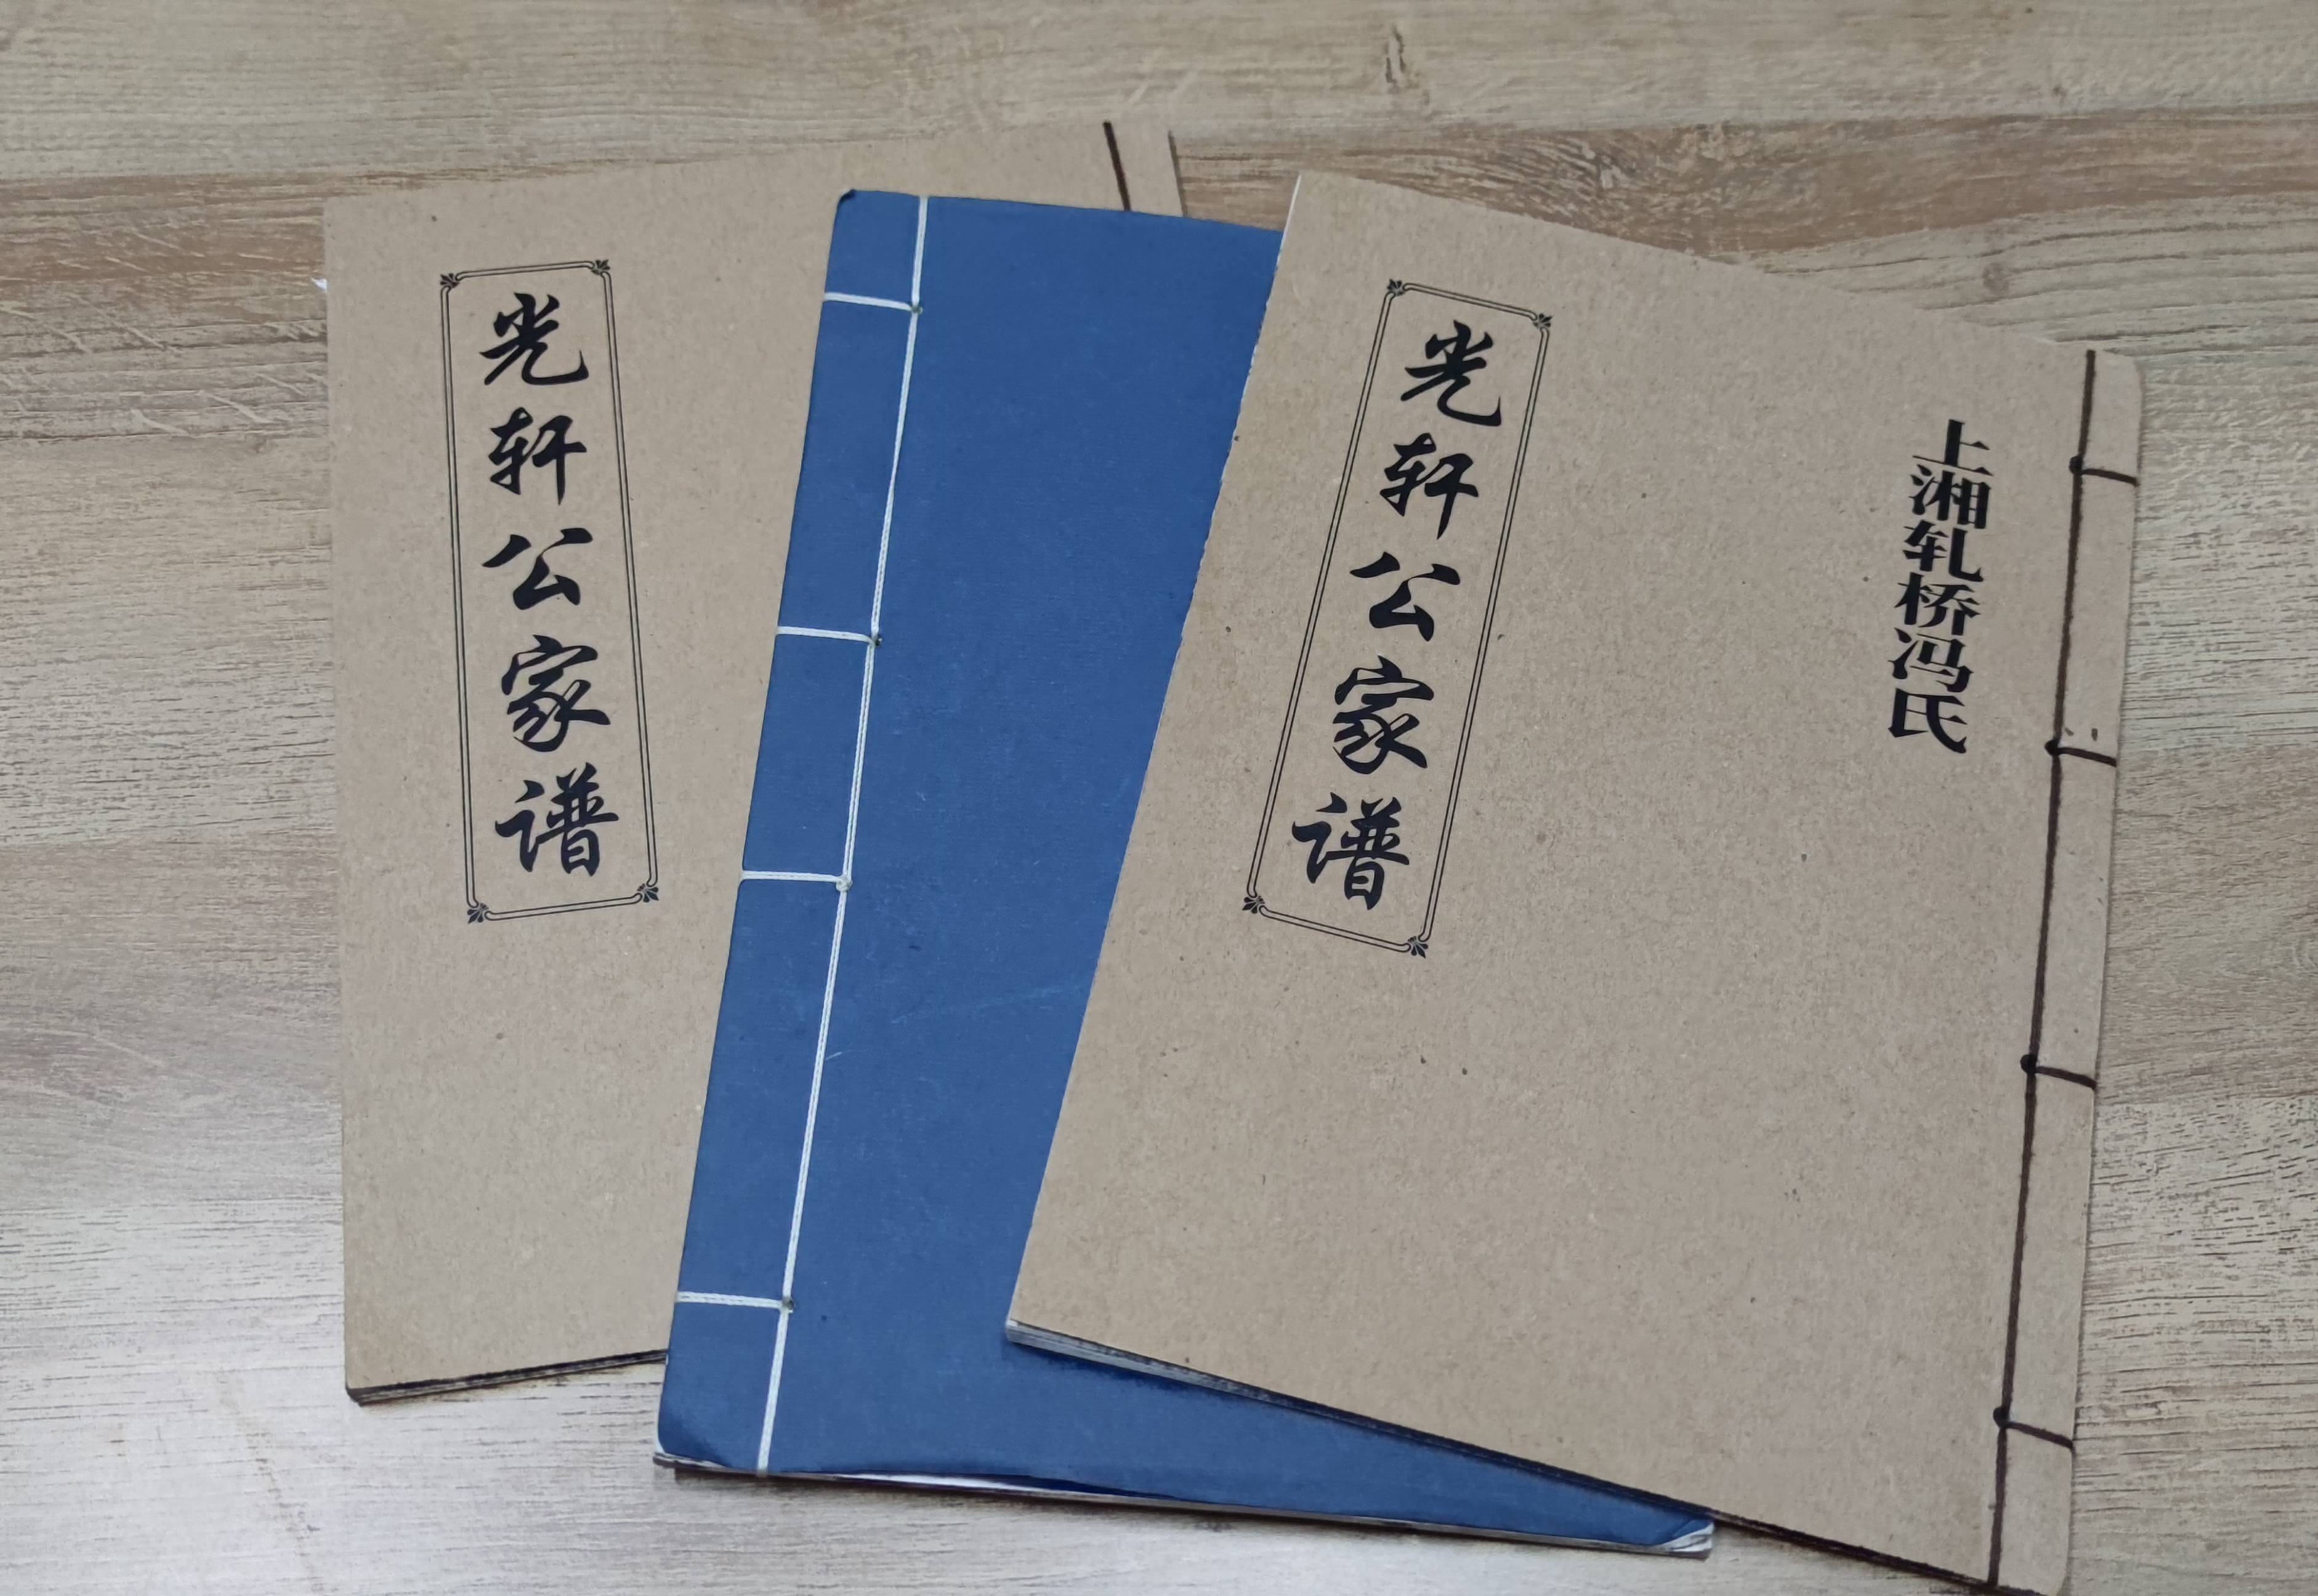 光轩公家谱
上湘轧桥冯氏
光轩公家谱